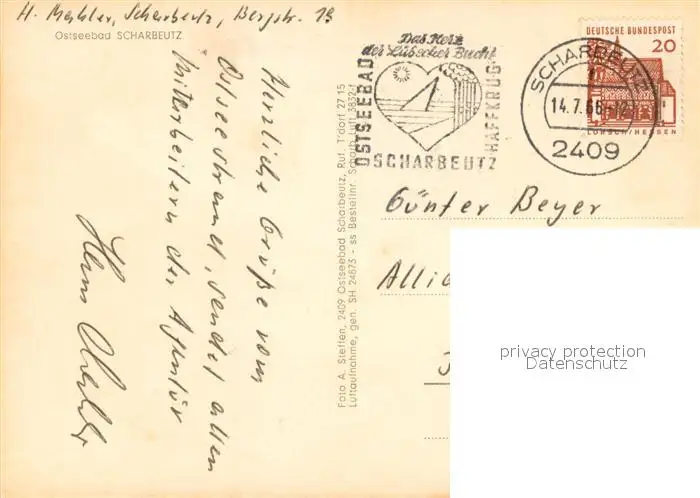 H. Mehler, Scharbeutz, Bergstr. 13
Ostseebad SCHARBEUTZ
Herzliche Grüße vom
Ostseestrand, sendet allen
Mitarbeitern der Agentur
Hans
Foto A. Steffen, 2409 Ostseebad Scharbeutz, Ruf. T'dorf 27 15
Luftaufnahme, gen. SH 24873 - ss Bestellnr. Scharb Luft 3832-1
Das Herz
der Lübecker Bucht
OSTSEEBAD
HAFFKRUG
SCHARBEUTZ
SCHARBEUTZ
14.7.66-12
2409
DEUTSCHE BUNDESPOST
20
LORSCH/HESSEN
Günter Beyer
privacy protection
Datenschutz